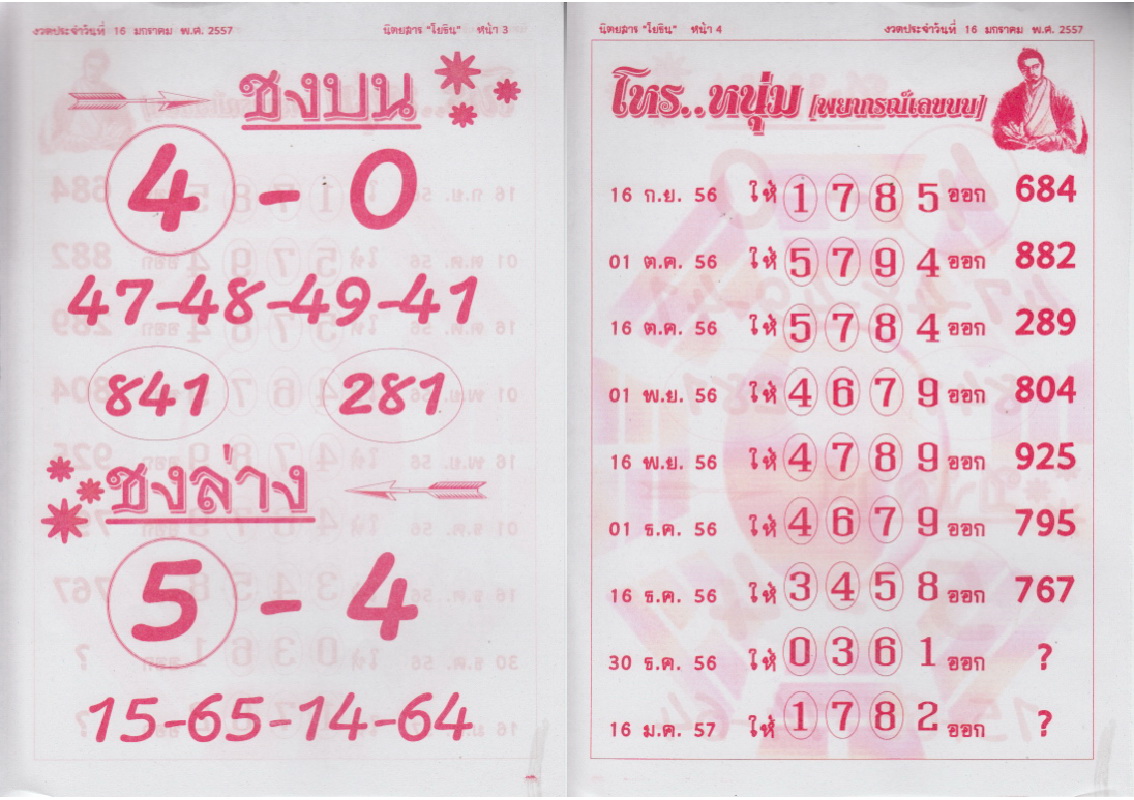 งวดประจำวันที่ 16 มกราคม พ.ศ. 2557 นิตยสาร "โยธิน" หน้า 3
ชงบน
4 - 0
47-48-49-41
841 281
ชงล่าง
5 - 4
15-65-14-64
นิตยสาร "โยธิน" หน้า 4 งวดประจำวันที่ 16 มกราคม พ.ศ. 2557
โหร..หนุ่ม [พยากรณ์เลขบน]
16 ก.ย. 56 ให้ 1 7 8 5 ออก 684
01 ต.ค. 56 ให้ 5 7 9 4 ออก 882
16 ต.ค. 56 ให้ 5 7 8 4 ออก 289
01 พ.ย. 56 ให้ 4 6 7 9 ออก 804
16 พ.ย. 56 ให้ 4 7 8 9 ออก 925
01 ธ.ค. 56 ให้ 4 6 7 9 ออก 795
16 ธ.ค. 56 ให้ 3 4 5 8 ออก 767
30 ธ.ค. 56 ให้ 0 3 6 1 ออก ?
16 ม.ค. 57 ให้ 1 7 8 2 ออก ?